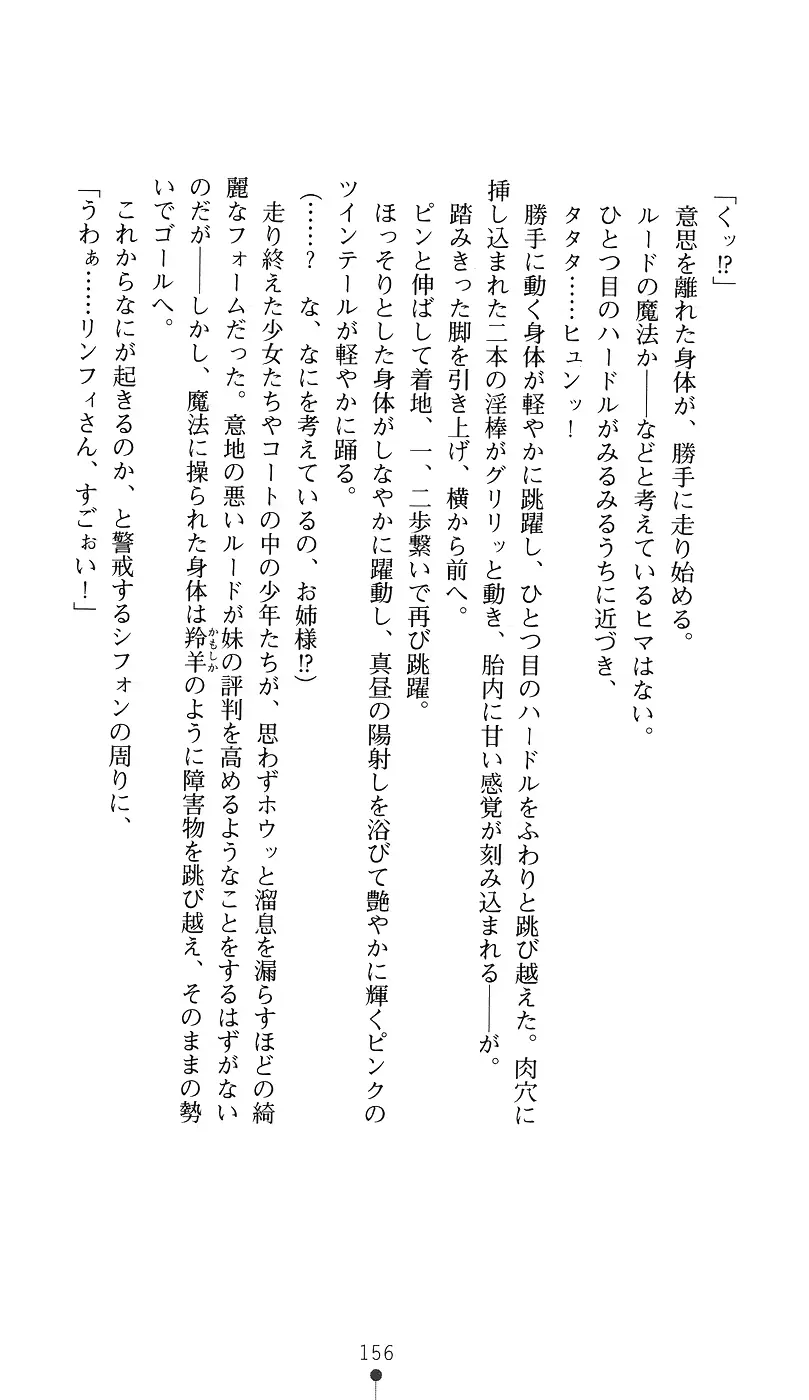 「くッ⁉」
意思を離れた身体が、勝手に走り始める。
ルードの魔法か――などと考えているヒマはない。
ひとつ目のハードルがみるみるうちに近づき、
タタタ……ヒュンッ！
勝手に動く身体が軽やかに跳躍し、ひとつ目のハードルをふわりと跳び越えた。
踏みきった脚を引き上げ、横から前へ。
ピンと伸ばして着地、一、二歩繋いで再び跳躍。
ほっそりとした身体がしなやかに躍動し、真昼の陽射しを浴びて艶やかに輝くピンクの
ツインテールが軽やかに踊る。
(……？　な、なにを考えているの、お姉様⁉)
走り終えた少女たちやコートの中の少年たちが、思わずホウッと溜息を漏らすほどの綺
麗なフォームだった。意地の悪いルードが妹の評判を高めるようなことをするはずがない
のだが――しかし、魔法に操られた身体は羚羊かもしかのように障害物を跳び越え、そのままの勢
いでゴールへ。
これからなにが起きるのか、と警戒するシフォンの周りに、
「うわぁ……リンフィさん、すごぉい！」
156